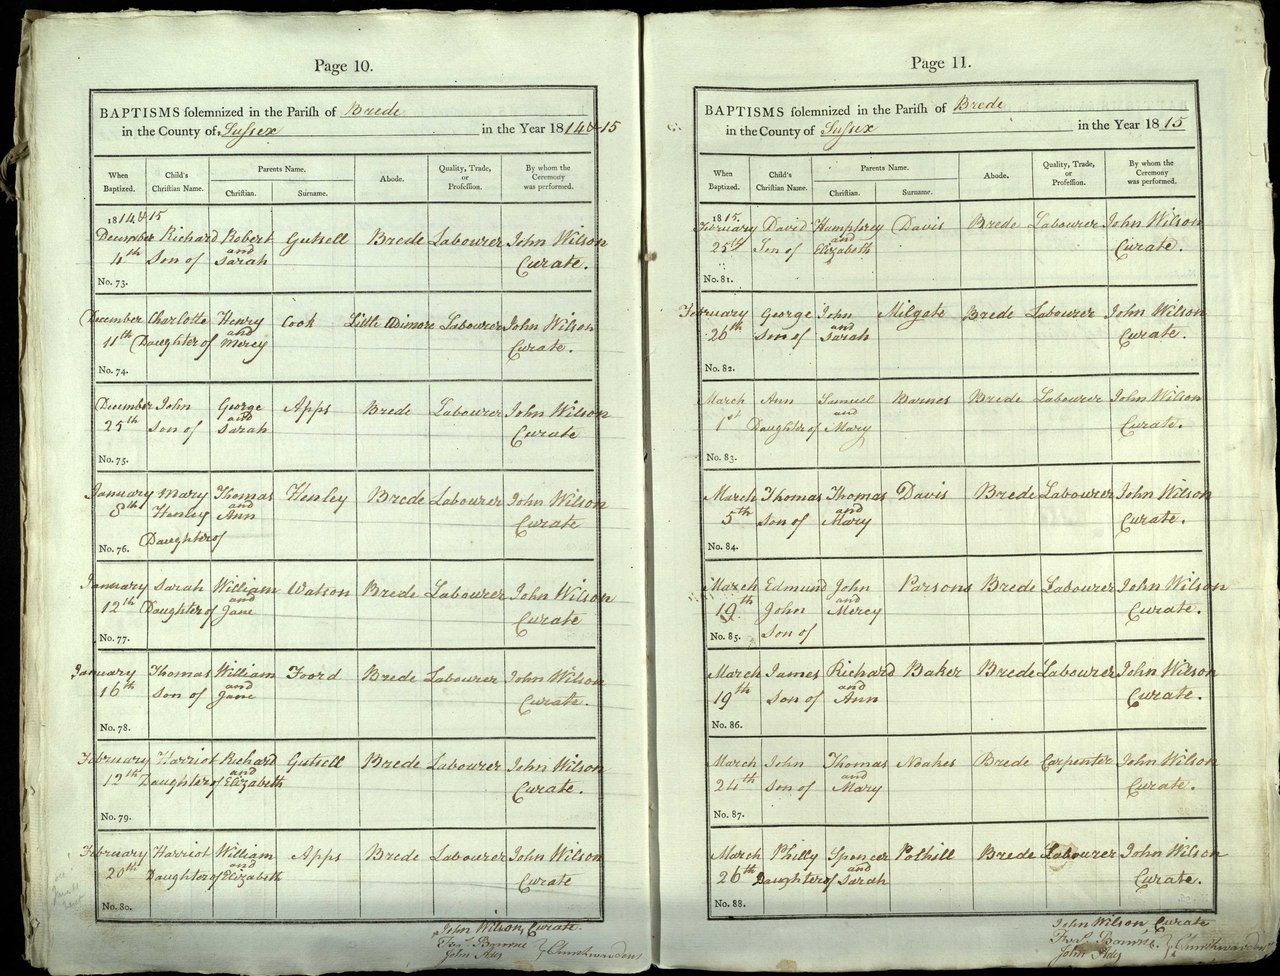 Page 10.
BAPTISMS solemnized in the Parish of Brede
in the County of Sussex in the Year 1814 & 15
When Baptized. Child's Christian Name. Parents Name. Christian. Surname. Abode. Quality, Trade, or Profession. By whom the Ceremony was performed.
1814 & 15
December Richard Robert Gutsell Brede Labourer John Wilson
4th Son of and Sarah Curate.
No. 73.
December Charlotte Henry Cook Little Udimore Labourer John Wilson
11th Daughter of and Mercy Curate.
No. 74.
December John George Apps Brede Labourer John Wilson
25th Son of and Sarah Curate
No. 75.
January Mary Thomas Henley Brede Labourer John Wilson
8th Henley and Ann Curate.
No. 76. Daughter of
January Sarah William Watson Brede Labourer John Wilson
12th Daughter of and Jane Curate
No. 77.
January Thomas William Foord Brede Labourer John Wilson
16th Son of and Jane Curate.
No. 78.
February Harriot Richard Gutsell Brede Labourer John Wilson
12th Daughter of and Elizabeth Curate.
No. 79.
February Harriot William Apps Brede Labourer John Wilson
20th Daughter of and Elizabeth Curate
No. 80.
John Wilson, Curate.
Churchwardens
John
Page 11.
BAPTISMS solemnized in the Parish of Brede
in the County of Sussex in the Year 1815
When Baptized. Child's Christian Name. Parents Name. Christian. Surname. Abode. Quality, Trade, or Profession. By whom the Ceremony was performed.
1815.
February David Humphrey Davis Brede Labourer John Wilson
25th Son of and Elizabeth Curate.
No. 81.
February George John Milgate Brede Labourer John Wilson
26th Son of and Sarah Curate.
No. 82.
March Ann Samuel Barnes Brede Labourer John Wilson
1st Daughter of and Mary Curate.
No. 83.
March Thomas Thomas Davis Brede Labourer John Wilson
5th Son of and Mary Curate.
No. 84.
March Edmund John Parsons Brede Labourer John Wilson
19th John and Mercy Curate.
No. 85. Son of
March James Richard Baker Brede Labourer John Wilson
19th Son of and Ann Curate.
No. 86.
March John Thomas Noakes Brede Carpenter John Wilson
24th Son of and Mary Curate.
No. 87.
March Philly Spencer Polhill Brede Labourer John Wilson
26th Daughter of and Sarah Curate.
No. 88.
John Wilson Curate
Churchwardens
John